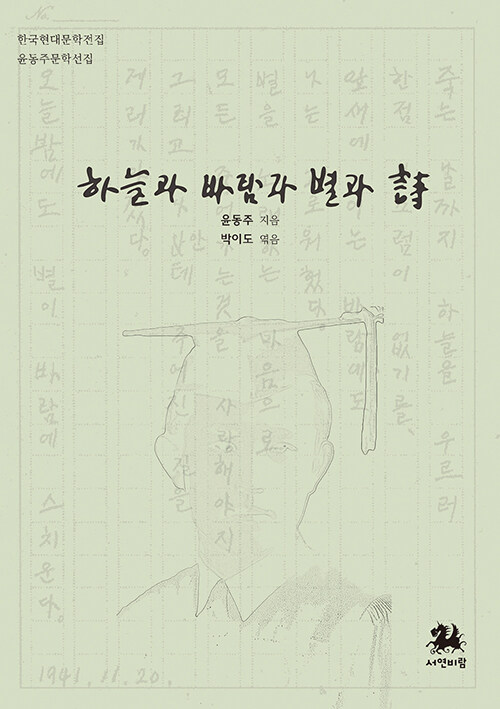 No.
한국현대문학전집
윤동주문학선집
하늘과 바람과 별과 詩
윤동주 지음
박이도 엮음
죽는 날까지 하늘을 우르러
한점 부끄럼이 없기를,
잎새에 이는 바람에도
나는 괴로워했다.
별을 노래하는 마음으로
모든 죽어가는것을 사랑해야지
그리고 나안테 주어진 길을
거러가야겠다.
오늘밤에도 별이 바람에 스치운다.
1941.11.20.
서연비람